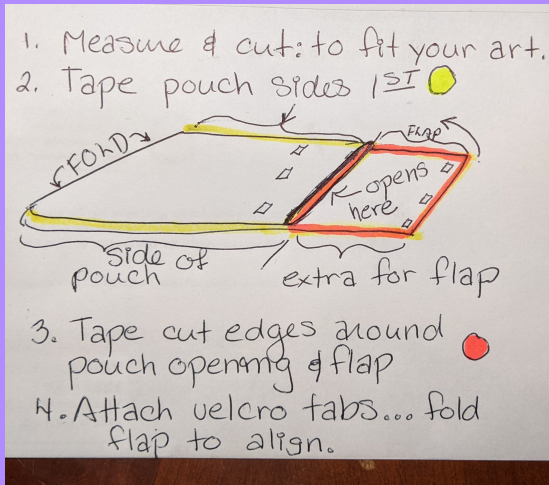 1. Measure & cut: to fit your art.
2. Tape pouch sides 1ST
FOLD
FLAP
opens
here
side of
pouch
extra for flap
3. Tape cut edges around
pouch opening & flap
4. Attach velcro tabs... fold
flap to align.